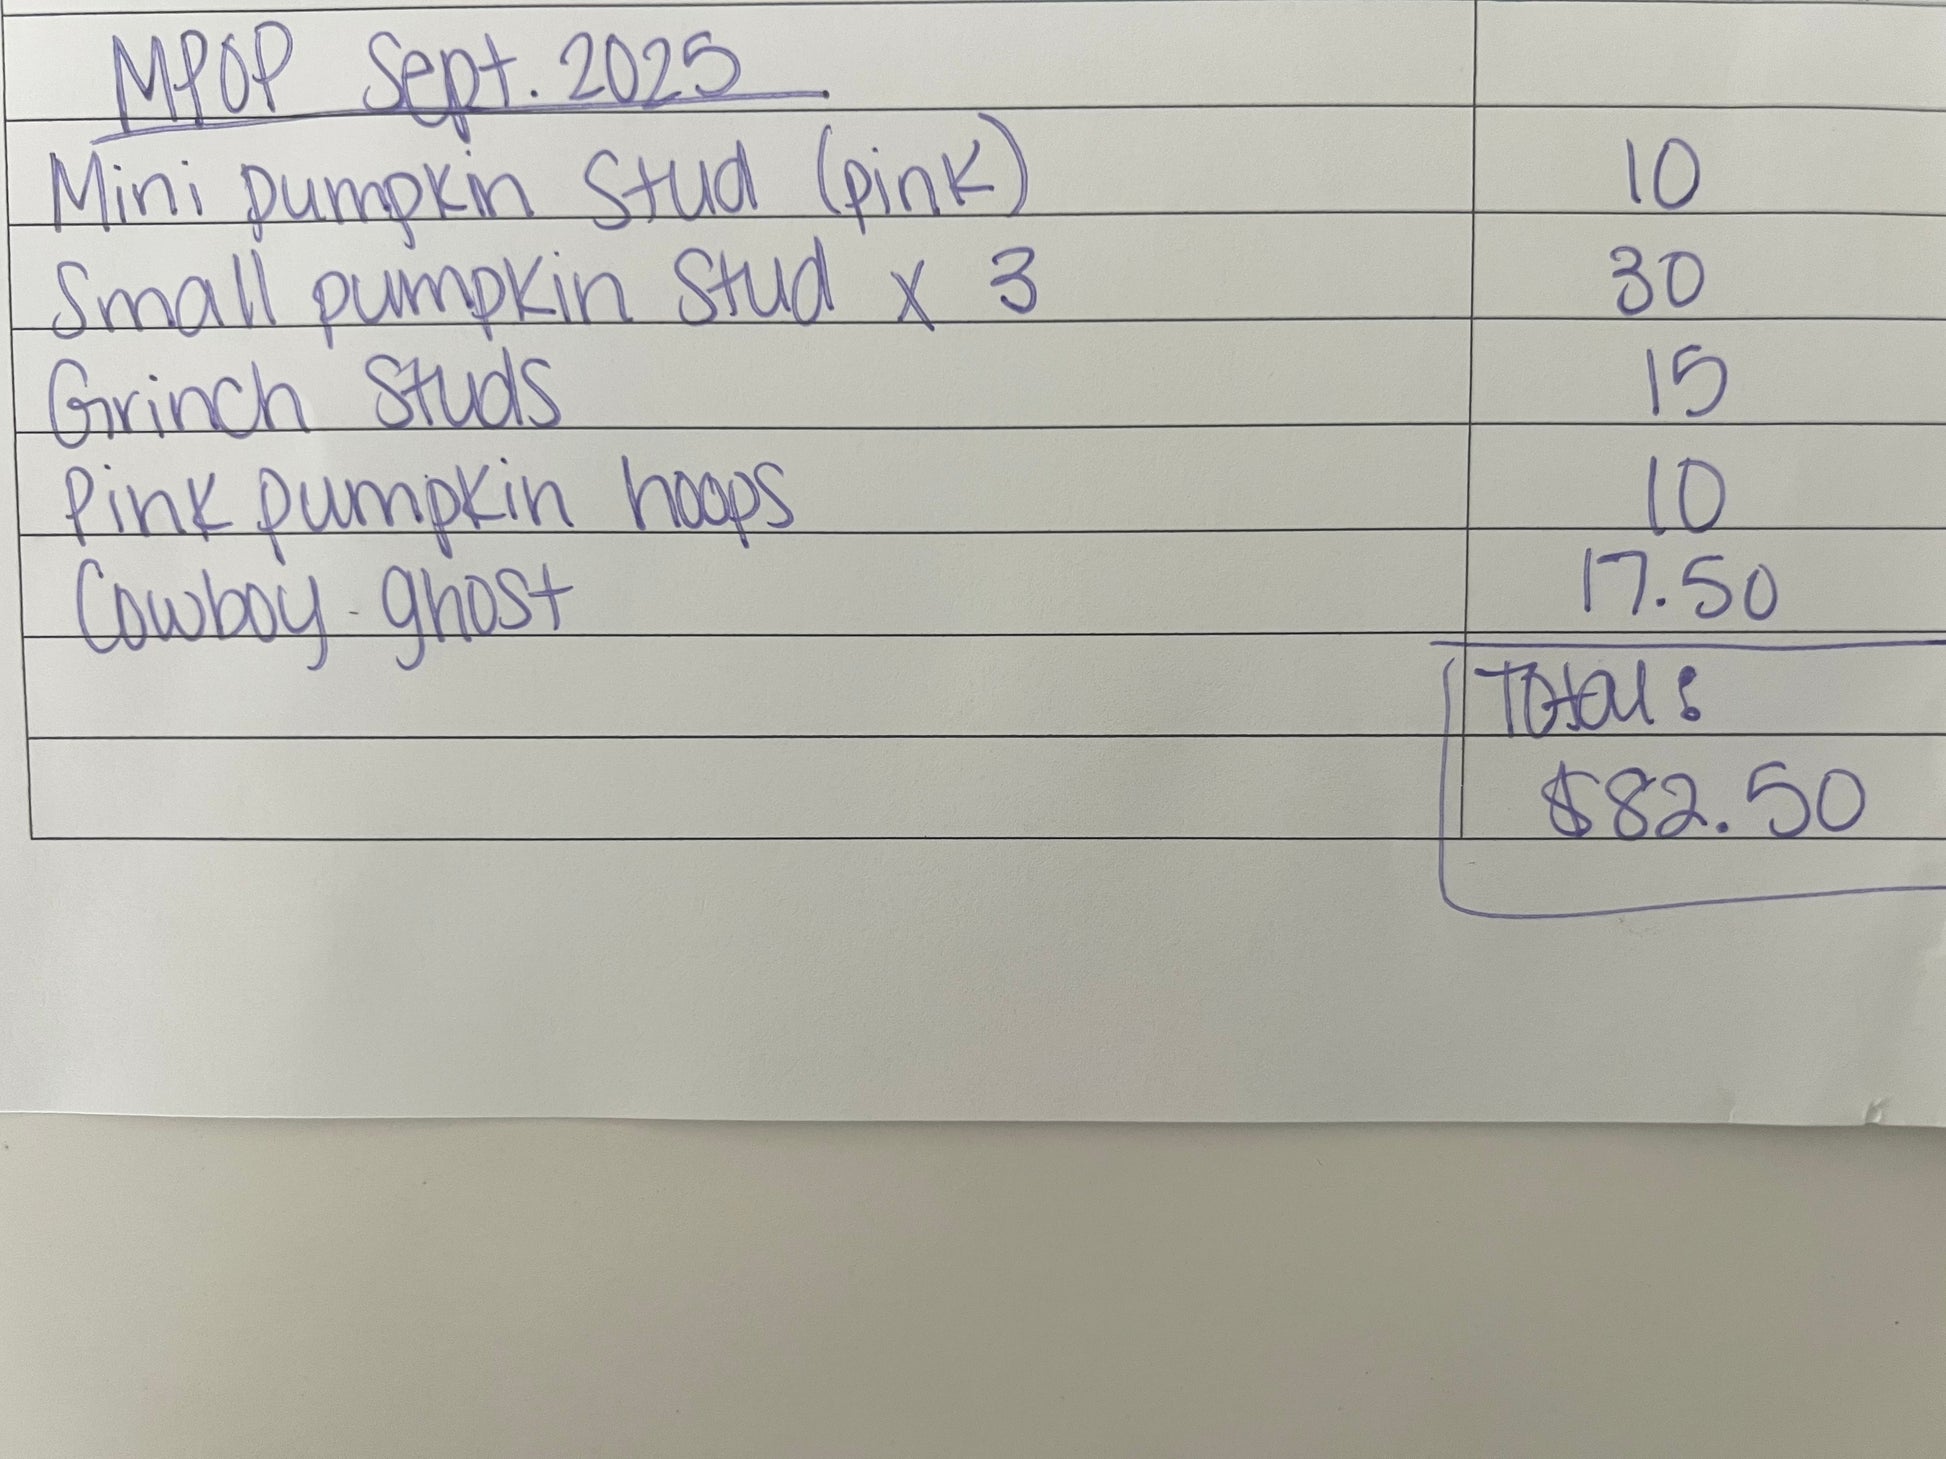 MPOP Sept. 2025
Mini pumpkin Stud (pink) 10
Small pumpkin Stud x 3 30
Grinch Studs 15
Pink pumpkin hoops 10
Cowboy ghost 17.50
Total:
$82.50